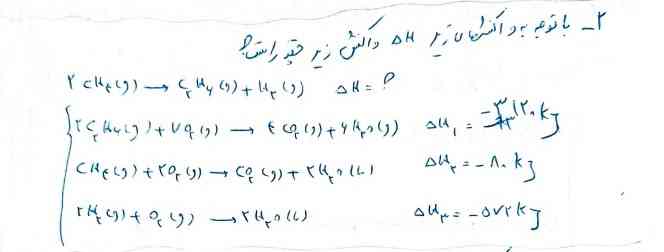 ۲- با توجه به واکنش‌های زیر ΔH واکنش زیر چقدر است؟
۲CH₄(g) → C₂H₆(g) + H₂(g) ΔH = ?
۲C₂H₆(g) + ۷O₂(g) → ۴CO₂(g) + ۶H₂O(g) ΔH₁ = -۳۱۲۰ kJ
CH₄(g) + ۲O₂(g) → CO₂(g) + ۲H₂O(L) ΔH₂ = -۸۹۰ kJ
۲H₂(g) + O₂(g) → ۲H₂O(L) ΔH₃ = -۵۷۲ kJ